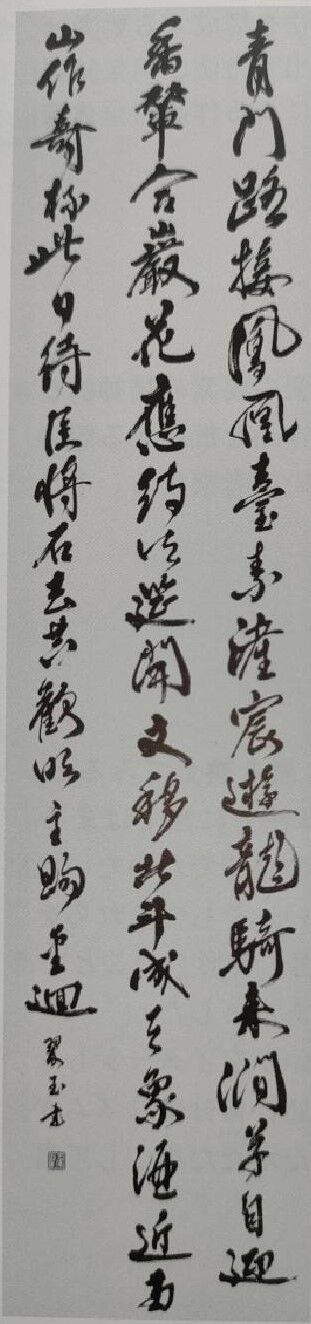 青門路接鳳凰臺素滻宸遊龍騎來澗草自迎
香輦合巖花應待御筵開文移北斗成天象酒近南
山作壽杯此日侍臣將石去共歡明主賜金迴